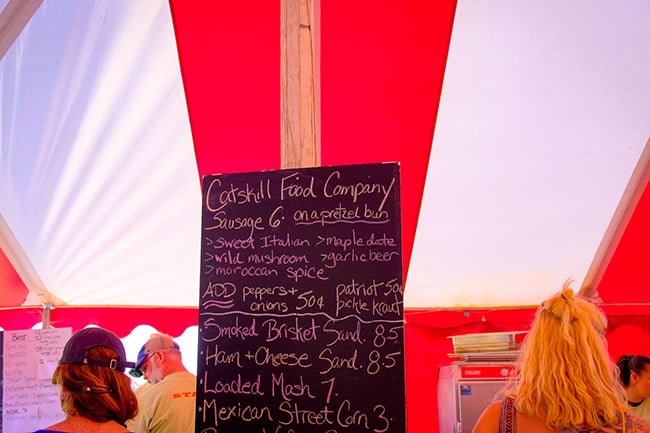 Catskill Food Company
Sausage 6. on a pretzel bun
>sweet Italian >maple date
>wild mushroom >garlic beer
>moroccan spice
ADD peppers + onions 50¢
patriot pickle kraut 50¢
Smoked Brisket Sand. 8.5
Ham + Cheese Sand. 8.5
Loaded Mash 7.
Mexican Street Corn 3.
Beer
STA